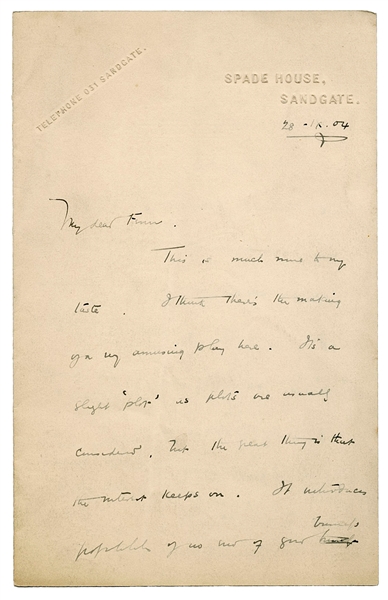 TELEPHONE 031 SANDGATE.
SPADE HOUSE,
SANDGATE.
28 - IX. 04
My dear
This is much more to my
taste. I think there's the making
of a very amusing play here. It's a
slight "plot" as plots are usually
considered, but the great thing is that
the interest keeps on. It introduces
business
possibilities of no end of good